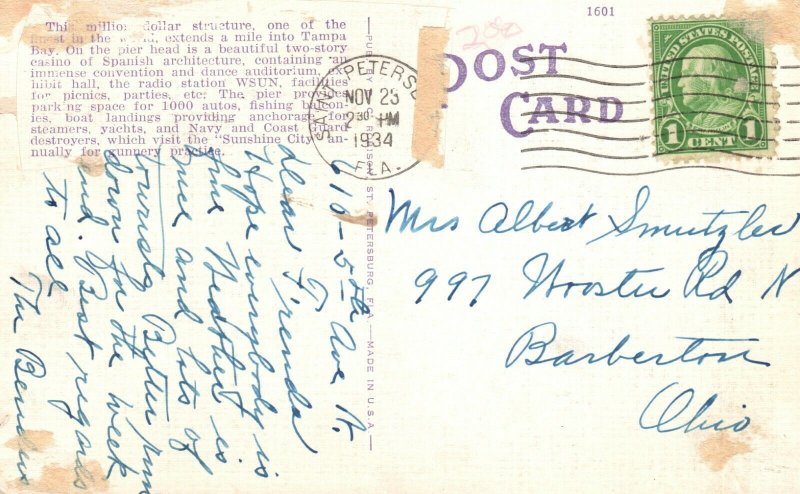 This million dollar structure, one of the
finest in the world, extends a mile into Tampa
Bay. On the pier head is a beautiful two-story
casino of Spanish architecture, containing an
immense convention and dance auditorium, ex-
hibit hall, the radio station WSUN, facilities
for picnics, parties, etc. The pier provides
parking space for 1000 autos, fishing balcon-
ies, boat landings providing anchorage for
steamers, yachts, and Navy and Coast Guard
destroyers, which visit the "Sunshine City" an-
nually for gunnery practice.
1601
200
POST
CARD
SAINT PETERSB
NOV 23
2 30 PM
1934
FLA.
UNITED STATES POSTAGE
1 1
CENT
PUB. BY
SON, ST. PETERSBURG, FLA. — MADE IN U.S.A.
610 - 5th Ave N.
Dear Friends
Hope everybody is
fine. Weather is
nice and lots of
tourists. Better run
down for the week
end. Best regards
to all.
The
Mrs Albert Smutzler
997 Wooster Rd N
Barberton
Ohio